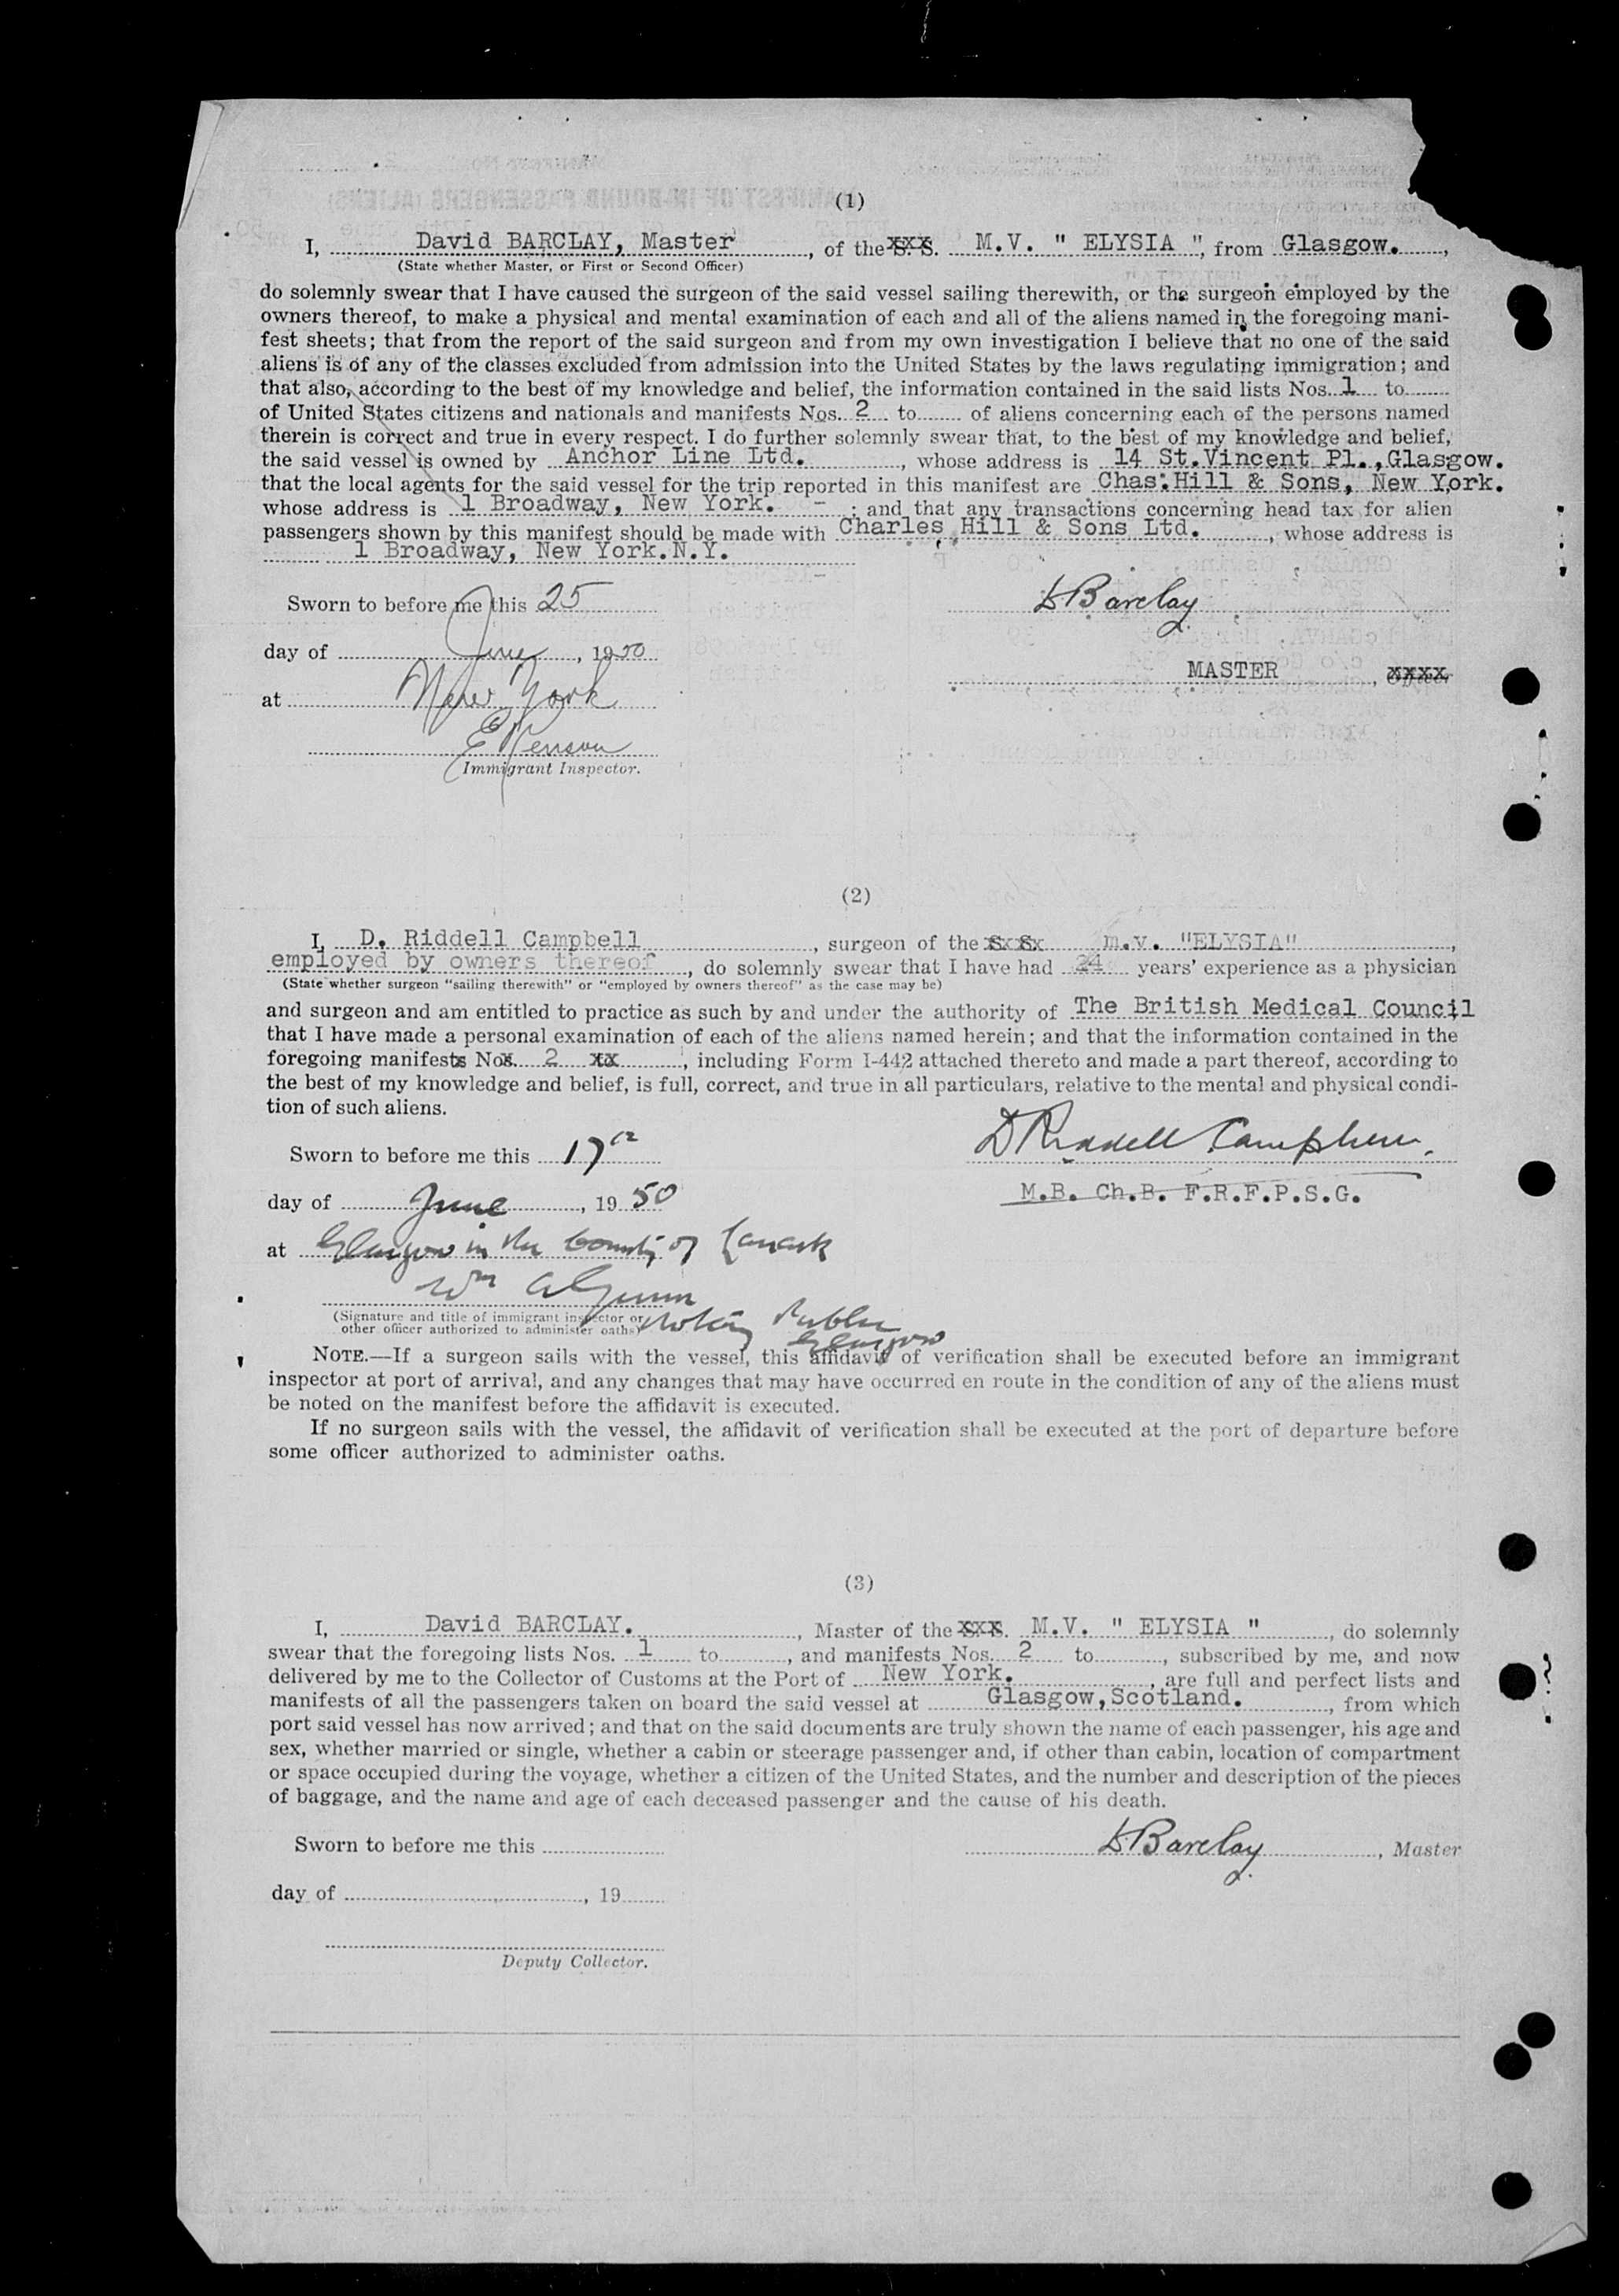 (1)
I, David BARCLAY, Master, of the S.S. M.V. " ELYSIA ", from Glasgow.,
(State whether Master, or First or Second Officer)
do solemnly swear that I have caused the surgeon of the said vessel sailing therewith, or the surgeon employed by the
owners thereof, to make a physical and mental examination of each and all of the aliens named in the foregoing mani-
fest sheets; that from the report of the said surgeon and from my own investigation I believe that no one of the said
aliens is of any of the classes excluded from admission into the United States by the laws regulating immigration; and
that also, according to the best of my knowledge and belief, the information contained in the said lists Nos. 1 to
of United States citizens and nationals and manifests Nos. 2 to of aliens concerning each of the persons named
therein is correct and true in every respect. I do further solemnly swear that, to the best of my knowledge and belief,
the said vessel is owned by Anchor Line Ltd., whose address is 14 St.Vincent Pl.,Glasgow.
that the local agents for the said vessel for the trip reported in this manifest are Chas.Hill & Sons, New York.
whose address is 1 Broadway, New York. - ; and that any transactions concerning head tax for alien
passengers shown by this manifest should be made with Charles Hill & Sons Ltd., whose address is
1 Broadway, New York.N.Y.
Sworn to before me this 25
D Barclay
day of June, 1950
MASTER, xxxx
at New York
Immigrant Inspector.
(2)
I, D. Riddell Campbell, surgeon of the S.S. m.v. "ELYSIA",
employed by owners thereof, do solemnly swear that I have had 24 years' experience as a physician
(State whether surgeon "sailing therewith" or "employed by owners thereof" as the case may be)
and surgeon and am entitled to practice as such by and under the authority of The British Medical Council
that I have made a personal examination of each of the aliens named herein; and that the information contained in the
foregoing manifests Nos. 2 xx, including Form I-442 attached thereto and made a part thereof, according to
the best of my knowledge and belief, is full, correct, and true in all particulars, relative to the mental and physical condi-
tion of such aliens.
Sworn to before me this 17th
D Riddell Campbell.
M.B. Ch.B. F.R.F.P.S.G.
day of June, 1950
at Glasgow in the County of Lanark
Wm A Gunn
(Signature and title of immigrant inspector or
other officer authorized to administer oaths)
Notary Public
Glasgow
NOTE.—If a surgeon sails with the vessel, this affidavit of verification shall be executed before an immigrant
inspector at port of arrival, and any changes that may have occurred en route in the condition of any of the aliens must
be noted on the manifest before the affidavit is executed.
If no surgeon sails with the vessel, the affidavit of verification shall be executed at the port of departure before
some officer authorized to administer oaths.
(3)
I, David BARCLAY., Master of the S.S. M.V. " ELYSIA ", do solemnly
swear that the foregoing lists Nos. 1 to, and manifests Nos. 2 to, subscribed by me, and now
delivered by me to the Collector of Customs at the Port of New York., are full and perfect lists and
manifests of all the passengers taken on board the said vessel at Glasgow,Scotland., from which
port said vessel has now arrived; and that on the said documents are truly shown the name of each passenger, his age and
sex, whether married or single, whether a cabin or steerage passenger and, if other than cabin, location of compartment
or space occupied during the voyage, whether a citizen of the United States, and the number and description of the pieces
of baggage, and the name and age of each deceased passenger and the cause of his death.
Sworn to before me this
D Barclay, Master
day of, 19
Deputy Collector.